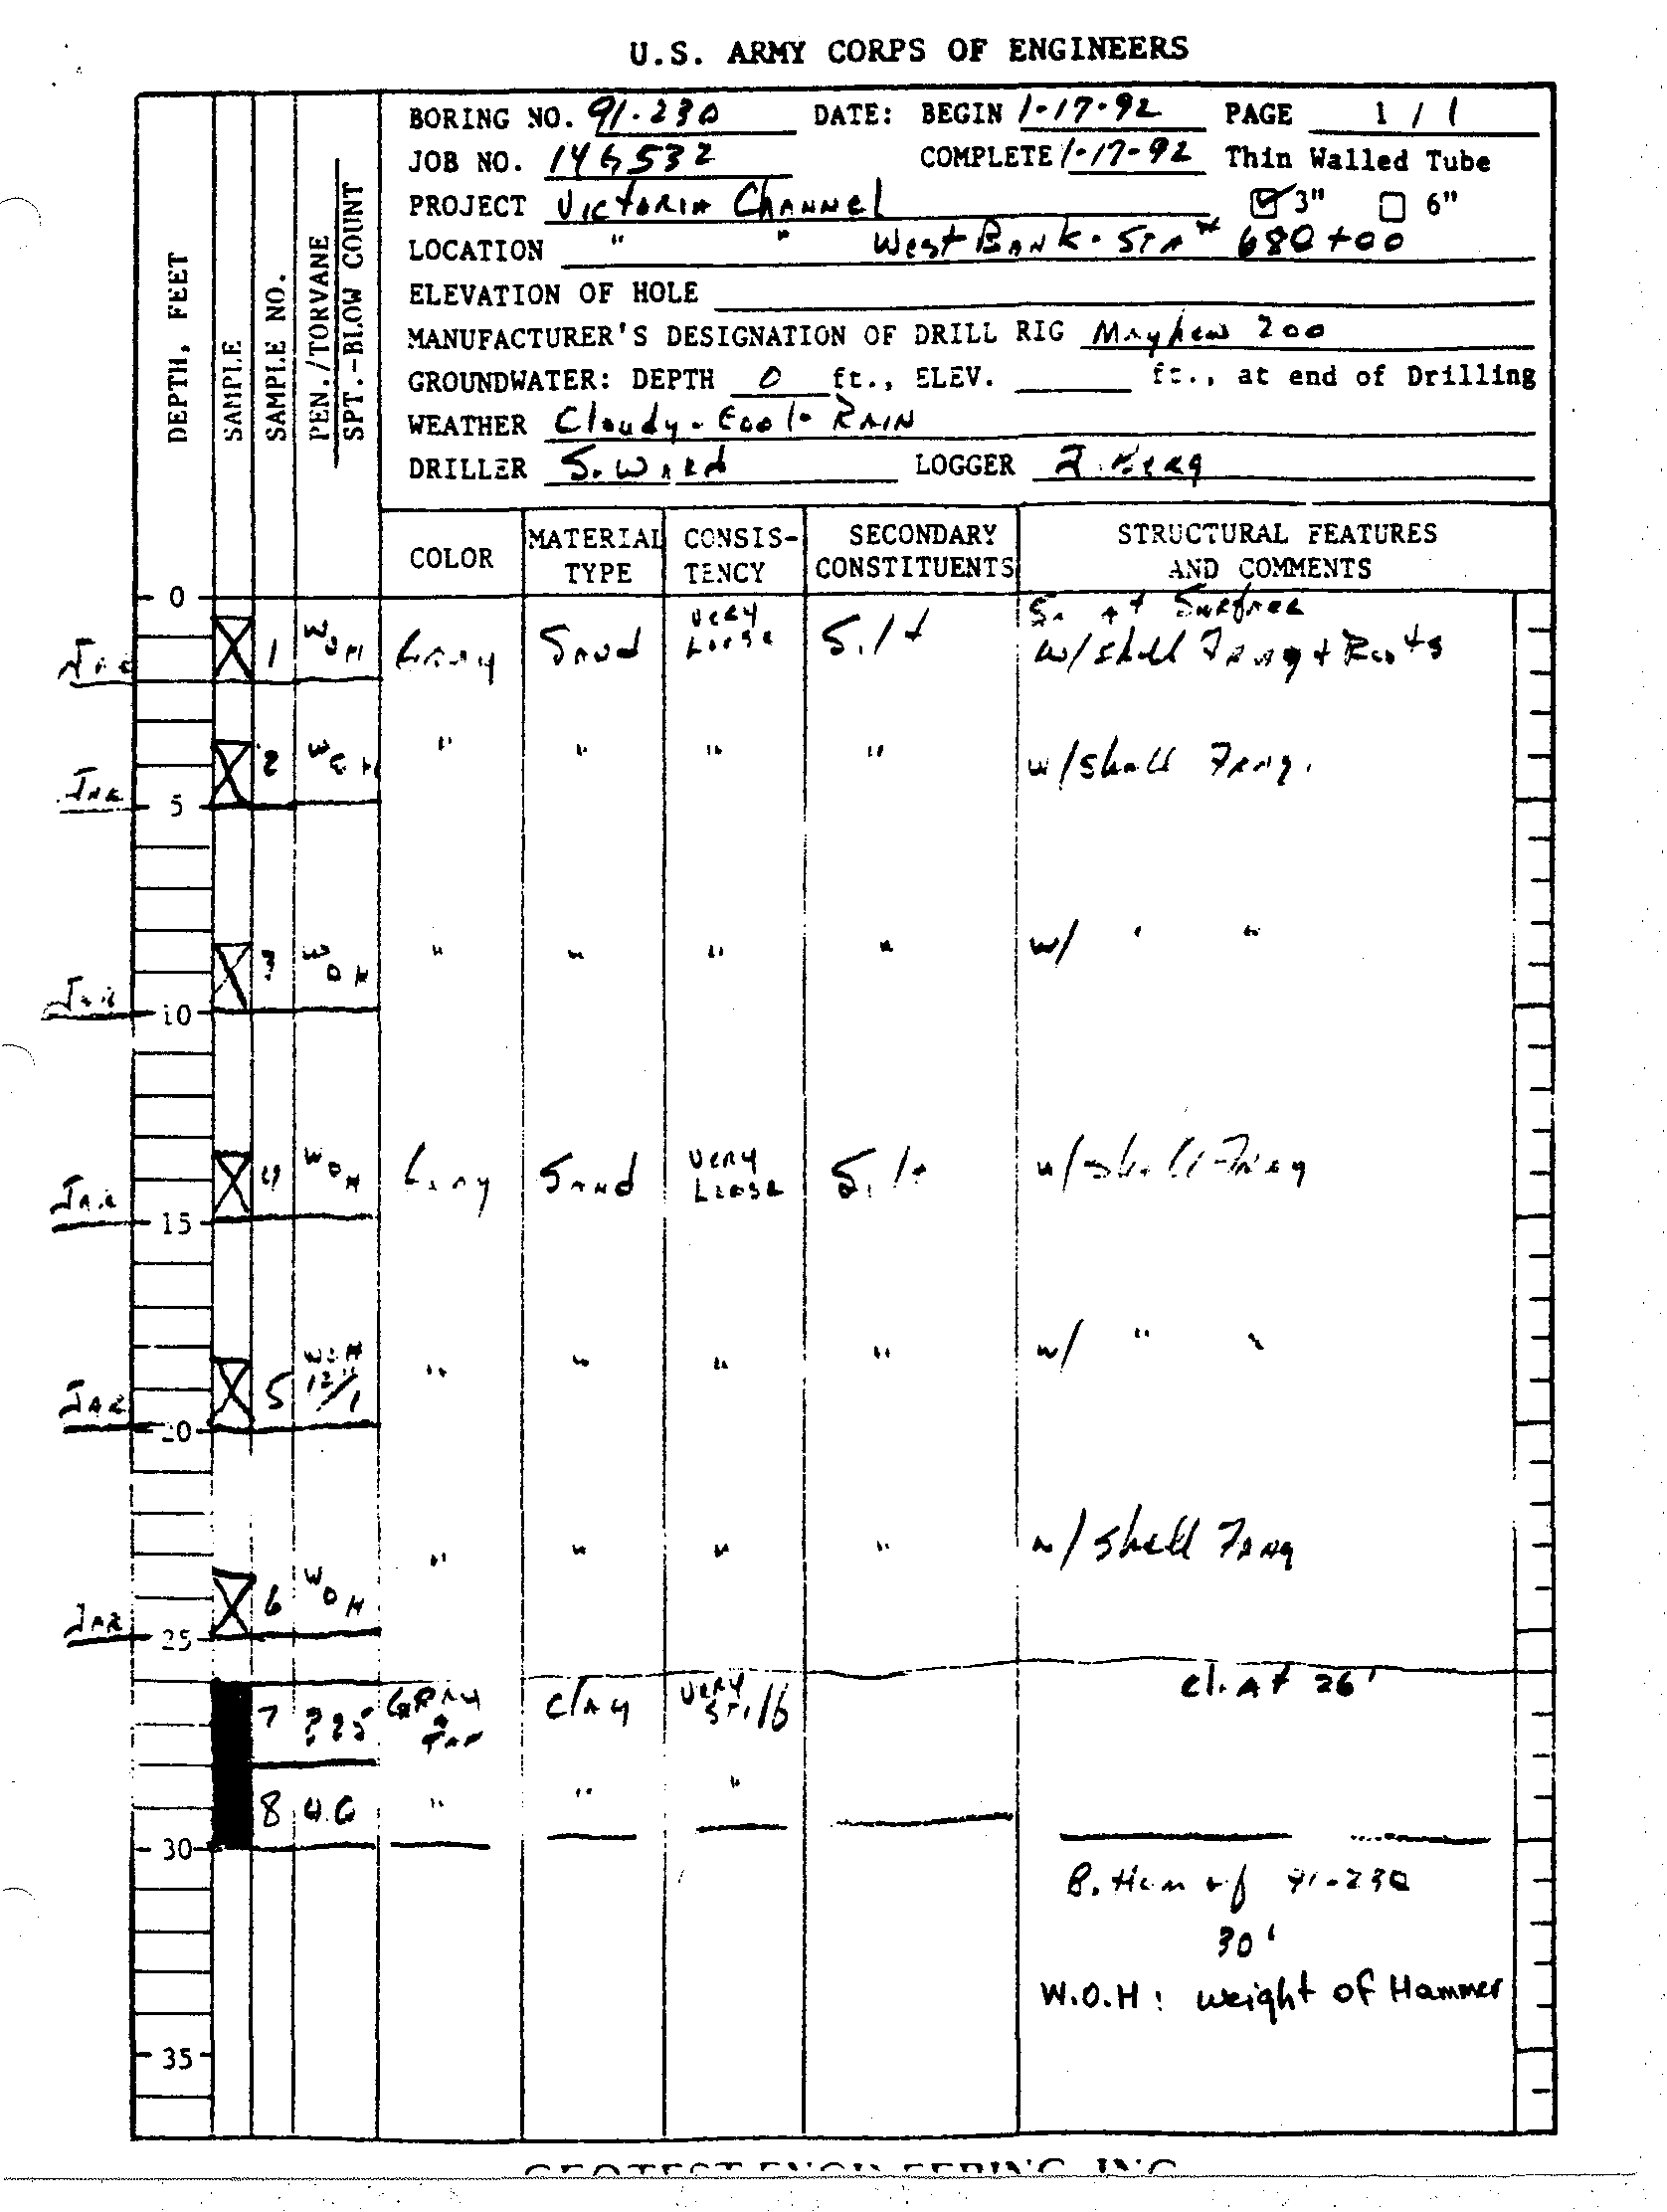 U.S. ARMY CORPS OF ENGINEERS
BORING NO. 91-230 DATE: BEGIN 1-17-92 PAGE 1 / 1
JOB NO. 146532 COMPLETE 1-17-92 Thin Walled Tube
PROJECT Victoria Channel 3" 6"
LOCATION " " West Bank - STA # 680+00
ELEVATION OF HOLE
MANUFACTURER'S DESIGNATION OF DRILL RIG Mayhew 200
GROUNDWATER: DEPTH 0 ft., ELEV. ft., at end of Drilling
WEATHER Cloudy - Cool - RAIN
DRILLER S. Ward LOGGER
DEPTH, FEET
SAMPLE
SAMPLE NO.
PEN./TORVANE
SPT.-BLOW COUNT
COLOR
MATERIAL TYPE
CONSIS-TENCY
SECONDARY CONSTITUENTS
STRUCTURAL FEATURES AND COMMENTS
0
Sa. At Surface
Jar 1 WOH Gray Sand very Loose Silt w/ shell Frag + Roots
Jar 2 WOH " " " " w/ shell Frag.
5
3 WOH " " " " w/ " "
Jar 10
4 WOH Gray Sand very Loose Silt w/ shell Frag
Jar 15
WOH
Jar 5 12"/1 " " " " w/ " "
20
" " " " w/ shell Frag
Jar 6 WOH
25
cl. At 26'
7 Gray + Tan Clay very stiff
8 " " "
30
Bottom of 91-230
30'
W.O.H: weight of Hammer
35